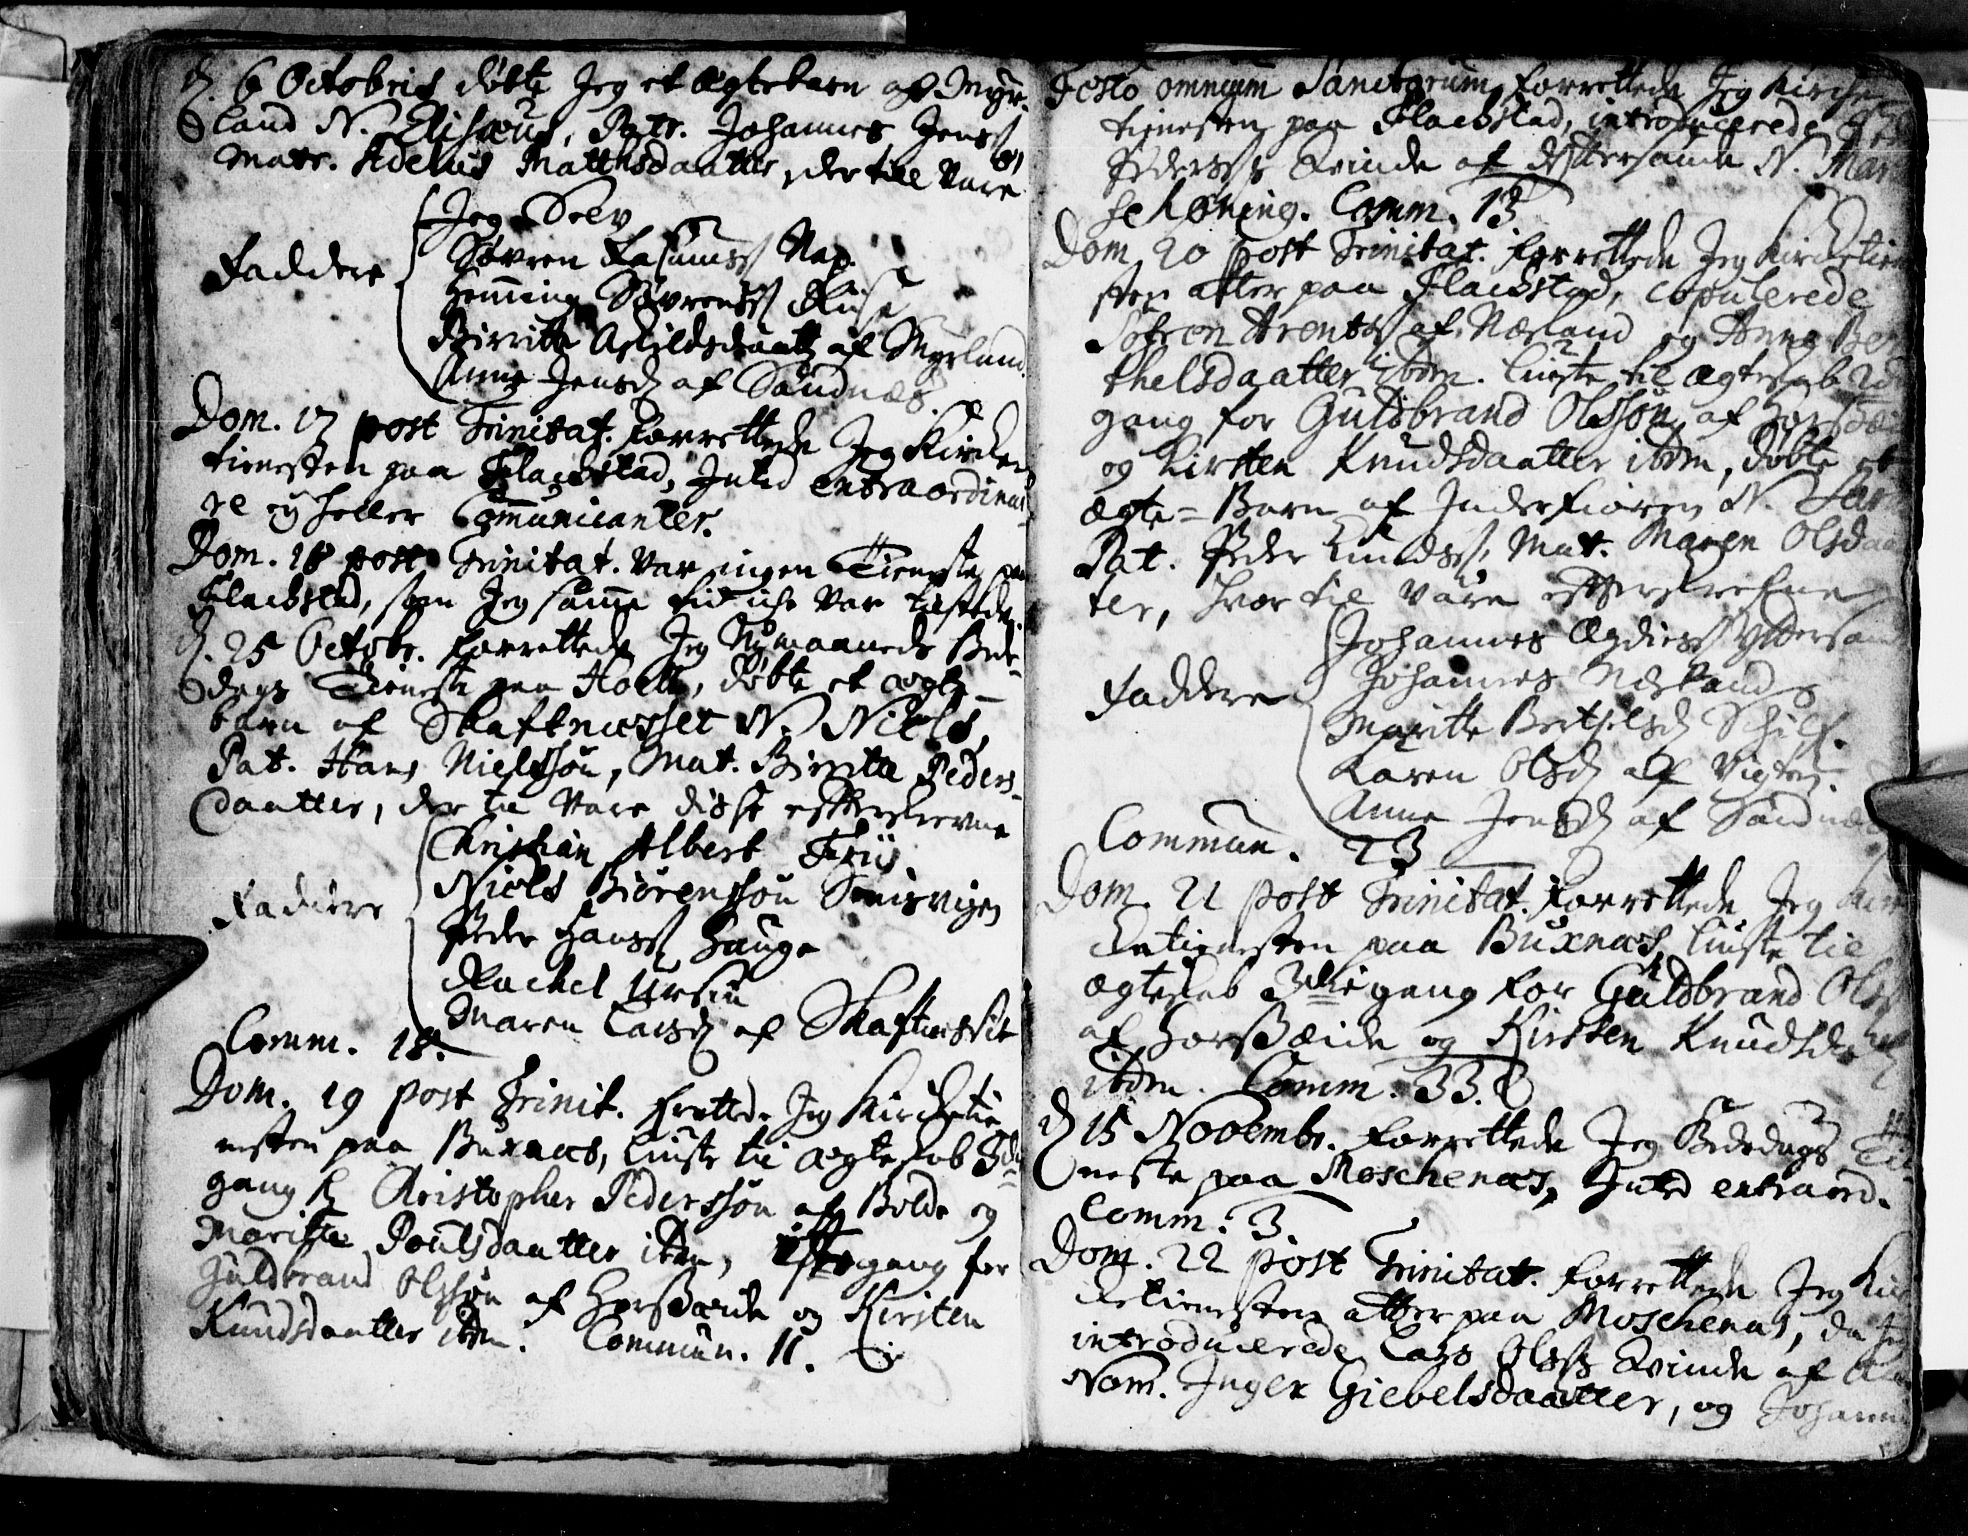 d. 6 Octobris døbte Jeg et Ægtebarn af Myr-
land N. Elisæus, Patr. Johannes Jenss
Matr. Adelus Matthsdaatter, der till vare
Jeg Selv
Søvren Rasmuss Nap.
Faddere
Henning Søvrenss
Birritte Askildsdaatt af Myrland
Anne Jensd af Sandnæs.
Dom. 17 post Trinitat. forrettede Jeg Kirche
tienesten paa Flachstad, Intid extraordinai
re ey heller Communicanter.
Dom. 18 post Trinitat. var ingen Tieneste paa
Flachstad, som Jeg samme tid iche var tilstede.
d. 25 Octobr. forrettede Jeg Nymaaneds Bede-
dags Tieneste paa Hoell, døbte et ægte-
barn af Skaftnæsset N. Niels,
Pat. Hans Nielssøn, Mat. Birrita Peders-
daatter, der til vare disse effterskrevne
Christian Albert Friis.
Niels Biørenssøn
Faddere
Peder Hanss Hauge
Rachel Ursin
Maren Larsd af Skaftnæsset
Comm. 18.
Dom. 19 post Trinit. forrettede Jeg Kirchetie
nesten paa Buxnæs, liuste til ægteskab 3die
gang for Christopher Pederssøn af Bolde og
Maritte Poulsdaatter ibdm, 1ste gang for
Guldbrand Olssøn af Horssæide og Kirsten
Knudsdaatter ibdm. Commun. 11.
Festo omnium Sanctorum forrettede Jeg Kirche
tienesten paa Flachstad, introducerede
Pederss Qvinde af Yttersand N. Mar
Schøning. Comm. 13
Dom. 20 post Trinitat. forrettede Jeg Kirchetiene
sten atter paa Flachstad, copulerede
Søfren Arentss af Næsland og Anne Ber
thelsdaatter ibdm. liuste til ægteskab 2den
gang for Guldbrand Olssøn af Horssæide
og Kirsten Knudsdaatter ibdm, døbte et
ægte-Barn af Inderfioren N.
Pat. Peder Knudss, Mat. Maren Olsdaat
ter, hvor til vare effterskrefne
Johannes Ægdiess Yttersand
Johannes Næsland
Faddere
Maritte Berthelsd Schielf.
Karen Olsd af Vigten
Anne Jensd af Sandnæs
Commun. 23
Dom. 21 post Trinitat. forrettede Jeg Kir
chetienesten paa Buxnæs, liuste til
ægteskab 3die gang for Guldbrand Olss
af Horssæide og Kirsten Knudsd
ibdm. Comm. 33.
d 15 Novembr. forrettede Jeg Bededags Tie
neste paa Moschenæs, Intid extraord.
Comm. 3.
Dom. 22 post Trinitat. forrettede Jeg Kir
chetienesten atter paa Moschenæs, da Jeg
introducerede Lars Olss Qvinde af
Nom. Inger Giebelsdaatter, og Johann